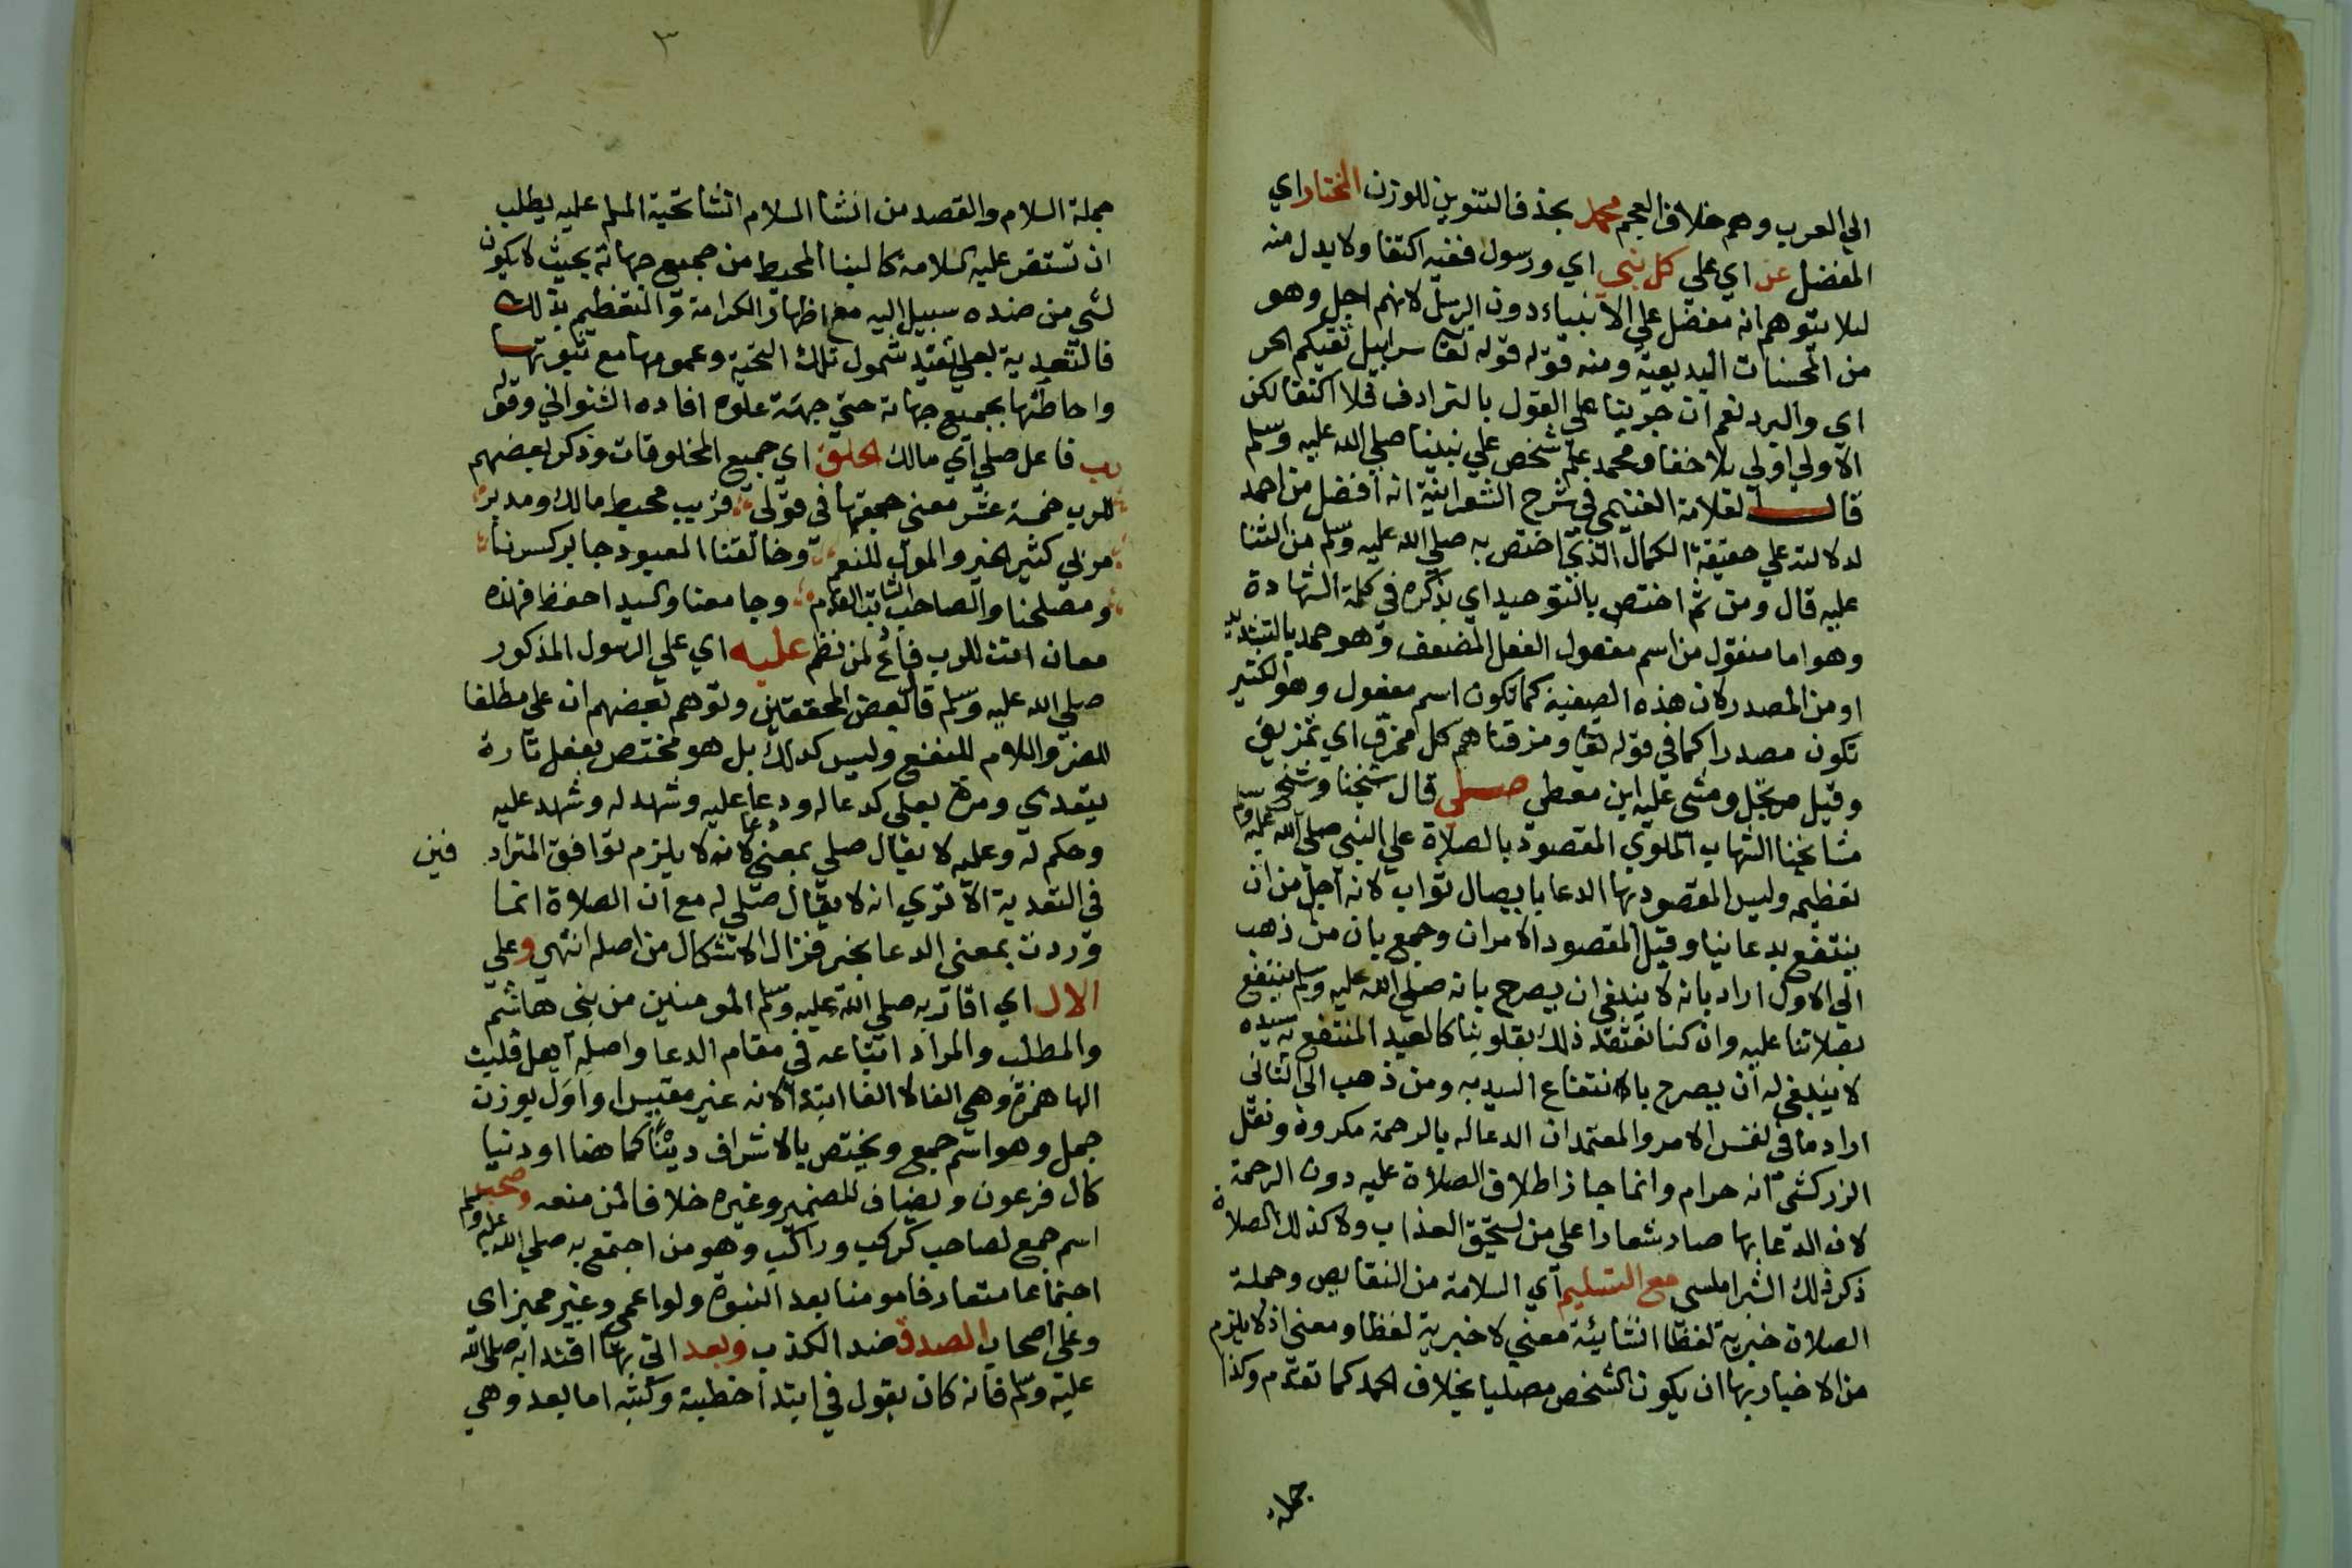 الي العرب وهم خلاف العجم محمد بحذف التنوين للوزن المختار اي
المفضل عن اي علي كل نبي اي ورسول ففيه اكتفا ولا بدل منه
ليلا يتوهم انه مفضل علي الانبياء دون الرسل لانهم اجل وهو
من المحسنات البديعية ومنه قوله قوله تعا سرابيل تقيكم الحر
اي والبرد نعم ان جرينا علي القول بالترادف فلا اكتفا لكن
الاولي اولي بلا خفا ومحمد علم شخص علي نبينا صلي الله عليه وسلم
قال العلامة الغنيمي في شرح الشعرانية انه افضل من احمد
لدلالته علي حقيقة الكمال الذي اختص به صلي الله عليه وسلم من الثنا
عليه قال ومن ثم اختص بالتوحيد اي بذكره في كلمة الشهادة
وهو اما منقول من اسم مفعول الفعل المضعف وهو حمد بالتشديد
او من المصدر لان هذه الصيغة كما تكون اسم مفعول وهو الكثير
تكون مصدرا كما في قوله تعا ومزقناهم كل ممزق اي تمزيق
وقيل مرتجل ومشي عليه ابن معطي صلي قال شيخنا وشيخ
مشايخنا الشهاب الملوي المقصود بالصلاة علي النبي صلي الله عليه وسلم
تعظيمه وليس المقصود بها الدعا بايصال ثواب لانه اجل من ان
ينتفع بدعانيا وقيل المقصود الامران وجمع بان من ذهب
الي الاول اراد بانه لا ينبغي ان يصرح بانه صلي الله عليه وسلم ينتفع
بصلاتنا عليه وان كنا نعتقد ذلك بقلوبنا كالعبد المنتفع به سيده
لا ينبغي له ان يصرح بالانتفاع السيد به ومن ذهب الي الثاني
اراد ما في نفس الامر والمعتمد ان الدعا له بالرحمة مكروه ونقل
الزركشي انه حرام وانما جاز اطلاق الصلاة عليه دون الرحمة
لان الدعا بها صار شعارا علي من يستحق العذاب ولا كذلك الصلاة
ذكر ذلك الشبراملسي مع التسليم اي السلامة من النقايص وجملة
الصلاة خبرية لفظا انشائية معني لا خبرية لفظا ومعني اذ لا يلزم
من الاخبار بها ان يكون الشخص مصليا بخلاف الحمد كما تقدم وكذا
جملة
٣
جملة السلام والقصد من انشا السلام انشا تحية المسلم عليه بطلب
ان تستقر عليه السلامة كالبنا المحيط من جميع جهاته بحيث لا يكون
لشي من ضده سبيل اليه مع اظهار الكرامة والتعظيم بذلك
فالتعدية بعلي تفيد شمول تلك التحية وعمومها مع ثبوتها
واحاطتها بجميع جهاته حتي جهة علوه افاده الشنواني وقوله
رب فاعل صلي اي مالك الخلق اي جميع المخلوقات وذكر بعضهم
للرب خمسة عشر معني جمعتها في قولي قريب محيط مالك ومدبر
مربي كثير الخير والمول للنعم وخالقنا المعبود جابر كسرنا
ومصلحنا والصاحب الثابت القدم وجامعنا والسيد احفظ فهذه
معان اتت للرب فادع لمن نظم عليه اي علي الرسول المذكور
صلي الله عليه وسلم قال بعض المحققين وتوهم بعضهم ان علي مطلقا
للضر واللام للنفع وليس كذلك بل هو مختص بفعل تارة
يتعدي ومرة بعلي كدعا له ودعا عليه وشهد له وشهد عليه
وحكم له وعليه لا يقال صلي بمعني دعا لانه لا يلزم توافق المتراد فين
في التعدية الا تري انه لا يقال صلي له مع ان الصلاة انما
وردت بمعني الدعا بخير فزال الاشكال من اصله انتهي وعلي
الال اي اقاربه صلي الله عليه وسلم المومنين من بني هاشم
والمطلب والمراد اتباعه في مقام الدعا واصله اهل قلبت
الها همزة وهي الفا لا الفا ابتدا لانه غير مقيس او اول بوزن
جمل وهو اسم جمع ويختص بالاشراف دينا كما هنا او دنيا
كال فرعون ويضاف للضمير وغيره خلافا لمن منعه وصحبه
اسم جمع لصاحب كركب وراكب وهو من اجتمع به صلي الله عليه وسلم
اجتماعا متعارفا مومنا بعد النبوة ولو اعمي وغير مميز اي
وعلي اصحاب الصدق ضد الكذب وبعد اتي بها اقتدا به صلي الله
عليه وسلم فانه كان يقول في ابتدا خطبه وكتبه اما بعد وهي